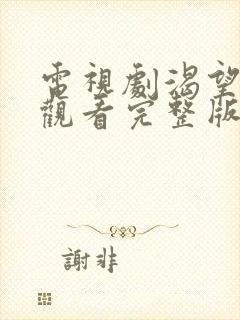 電視劇渴望
觀看完整版
謝非